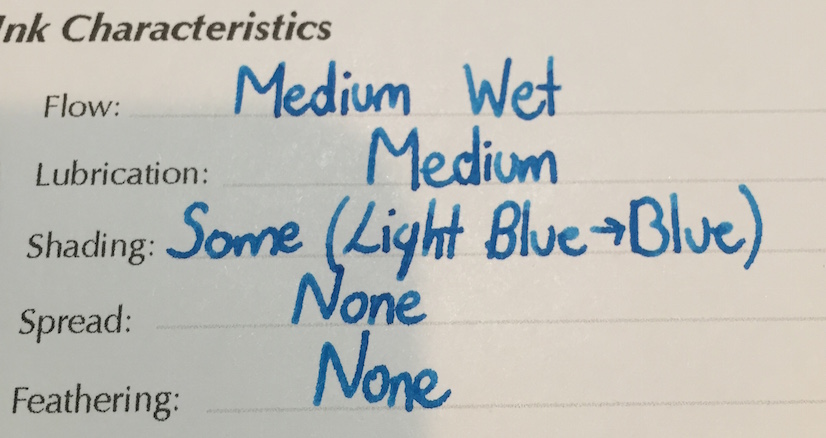 Ink Characteristics
Flow: Medium Wet
Lubrication: Medium
Shading: Some (Light Blue→Blue)
Spread: None
Feathering: None